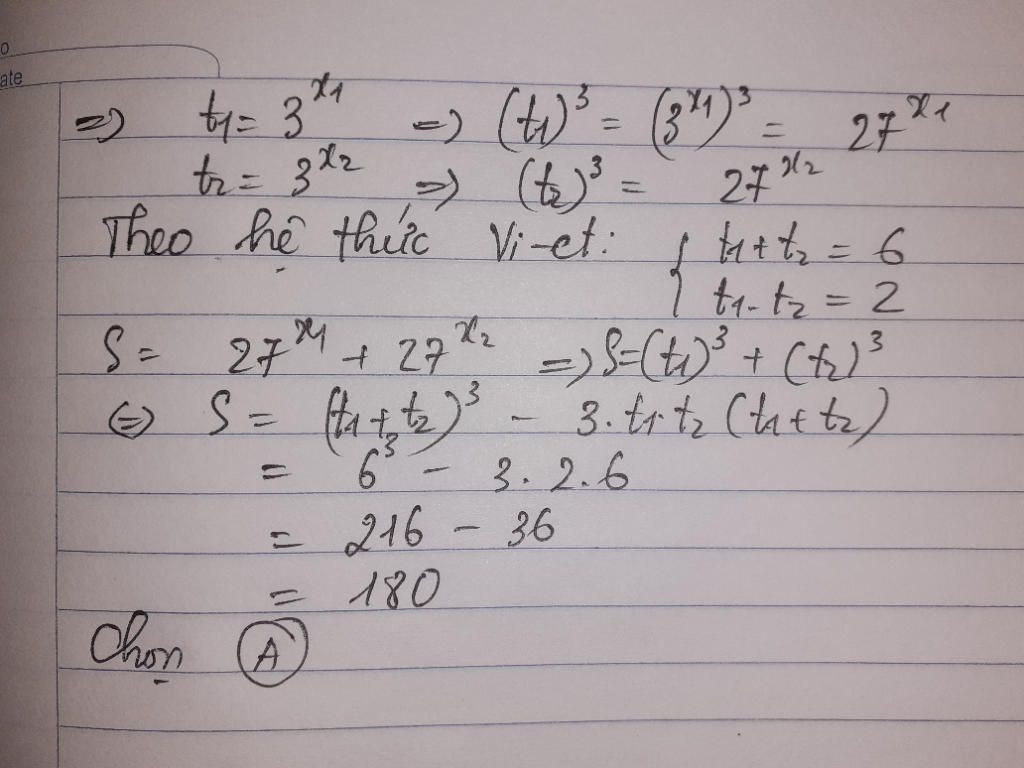 o
ate
=> t₁ = 3^x₁ => (t₁)³ = (3^x₁)³ = 27^x₁
t₂ = 3^x₂ => (t₂)³ = 27^x₂
Theo hệ thức Vi-et: { t₁ + t₂ = 6
t₁. t₂ = 2
S = 27^x₁ + 27^x₂ => S = (t₁)³ + (t₂)³
<=> S = (t₁ + t₂)³ - 3. t₁. t₂ (t₁ + t₂)
= 6³ - 3. 2. 6
= 216 - 36
= 180
Chọn A